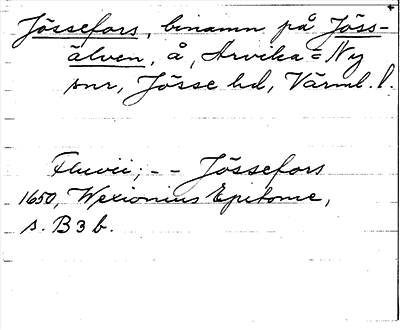 Jössefors, binamn på Jöss-
älven, å, Arvika = Ny
snr, Jösse hd, Värml. l.
Fluvii; - - Jössefors
1650, Wexionius Epitome,
s. B 3 b.